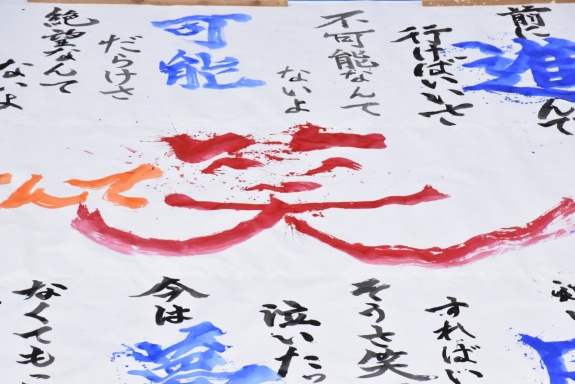 前に
進んで
行けばいいさ
不可能なんて
ないよ
可能
だらけさ
絶望なんて
ないよ
笑
んて
すればい
そうさ笑
泣いたっ
今は
なくても